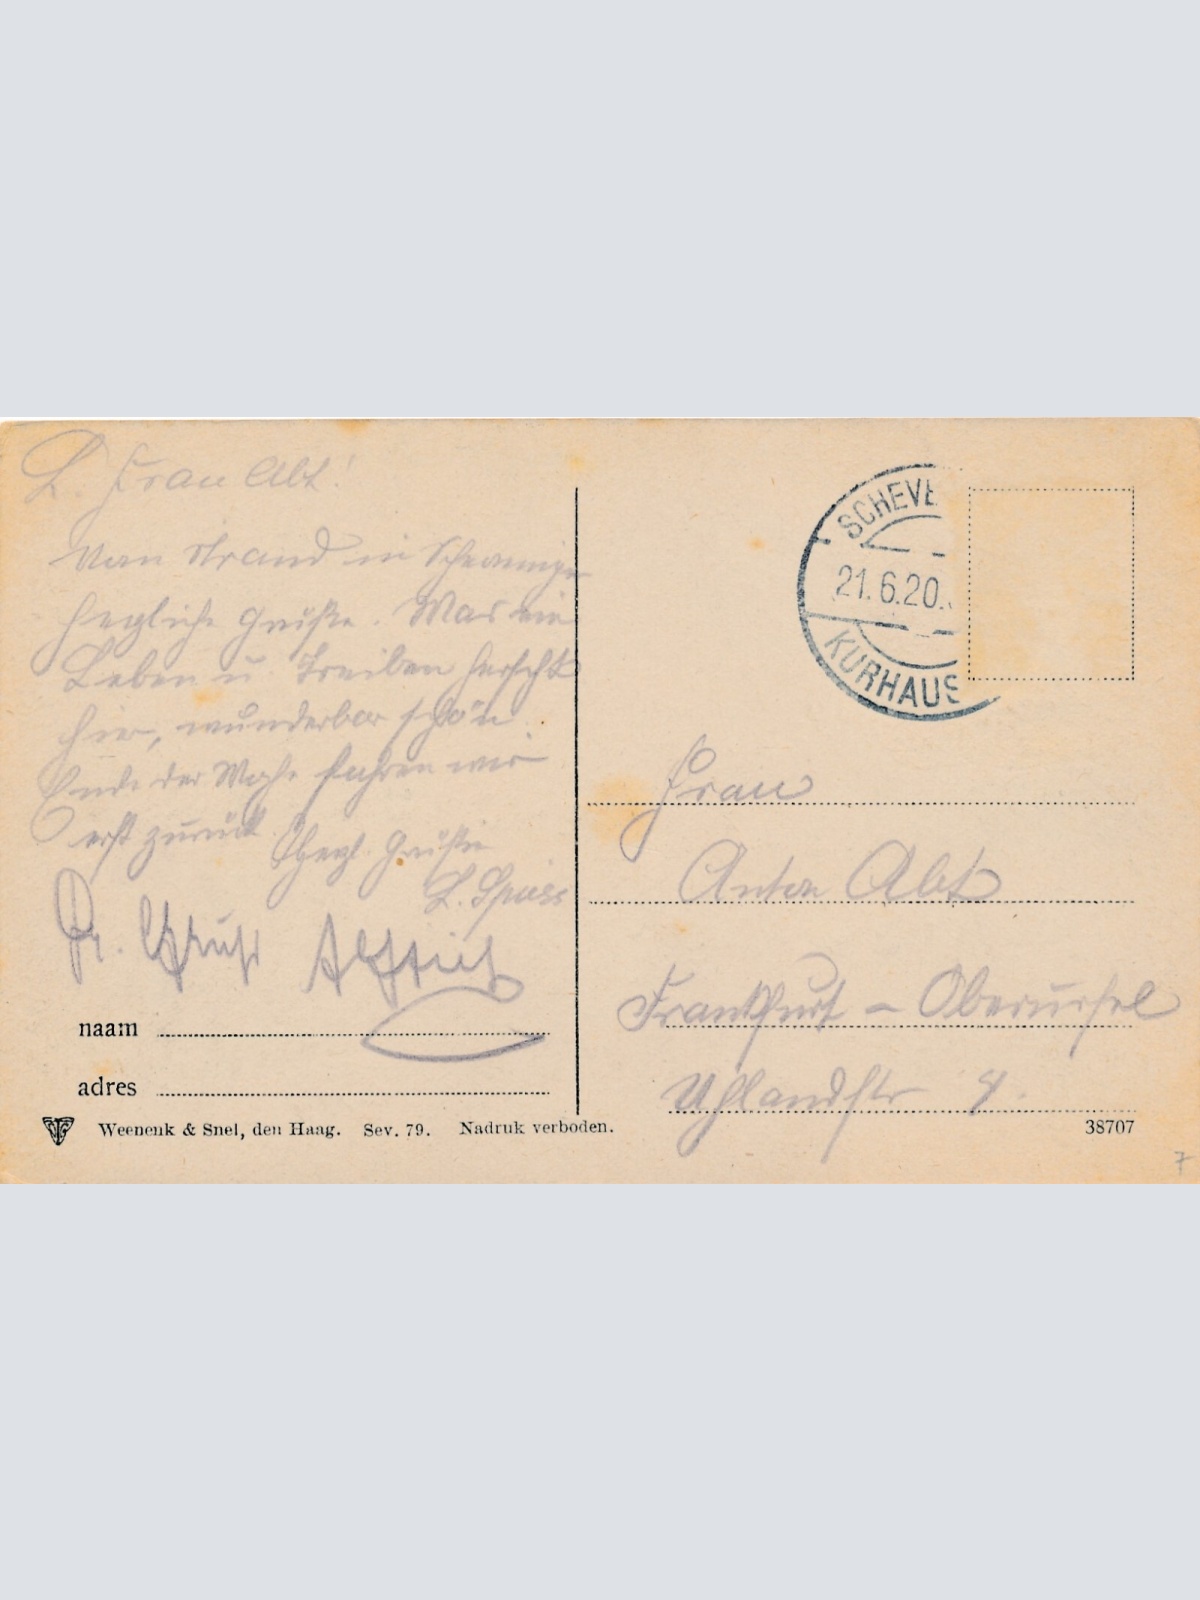 L. Frau Abt!
Vom Strand in
herzliche Grüße. Was ein
Leben u Treiben herscht
hier, wunderbar schön
Ende der Woche fahren wir
erst zurück
Herzl. Grüße
L. Spiess
Gruß
naam
adres
Weenenk & Snel, den Haag. Sev. 79. Nadruk verboden.
SCHEVE
21.6.20.
KURHAUS
Frau
Anton Abt
Frankfurt - Oberursel
Uhlandstr 4.
38707
7